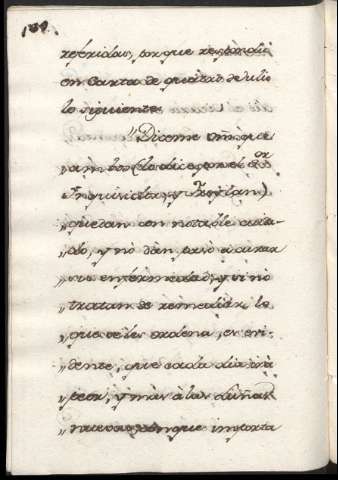 referidas, porque respondió
en Carta de quatro de Julio
lo siguiente
"Diceme Om.º que
" ambos (lo dice por el S.or
" Inquisidor, y Froylan)
" quedan con notable cuida-
" do, y nó dan paso á curar
" su enfermedad; y si nó
" tratan de remediar lo
" que se les ordena, es evi-
" dente, que cada dia irá
" peor, y más á las Lunas
" nuevas, porque importa